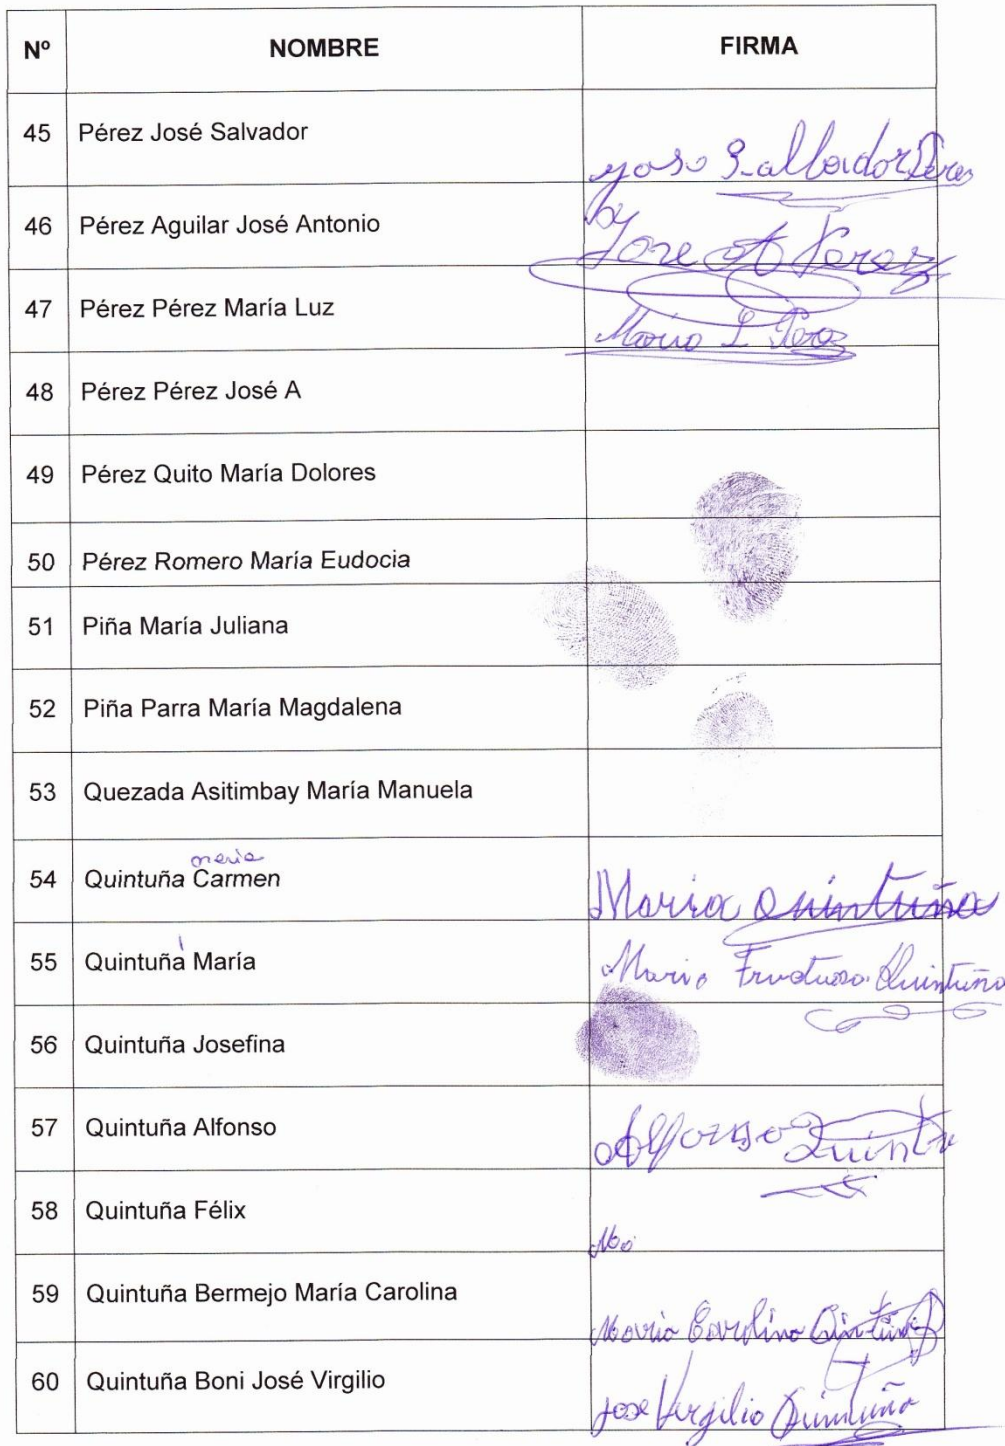 Nº NOMBRE FIRMA
45 Pérez José Salvador
yoso Salbador Peres
46 Pérez Aguilar José Antonio
Jose A Perez
47 Pérez Pérez María Luz
Maria L Perez
48 Pérez Pérez José A
49 Pérez Quito María Dolores
50 Pérez Romero María Eudocia
51 Piña María Juliana
52 Piña Parra María Magdalena
53 Quezada Asitimbay María Manuela
maria
54 Quintuña Carmen Maria Quintuña
55 Quintuña María Maria Fructuosa Quintuña
56 Quintuña Josefina
57 Quintuña Alfonso Alfonso Quintu
58 Quintuña Félix
No
59 Quintuña Bermejo María Carolina
Maria Carolina Quintuña
60 Quintuña Boni José Virgilio
jose Virgilio Quintuña